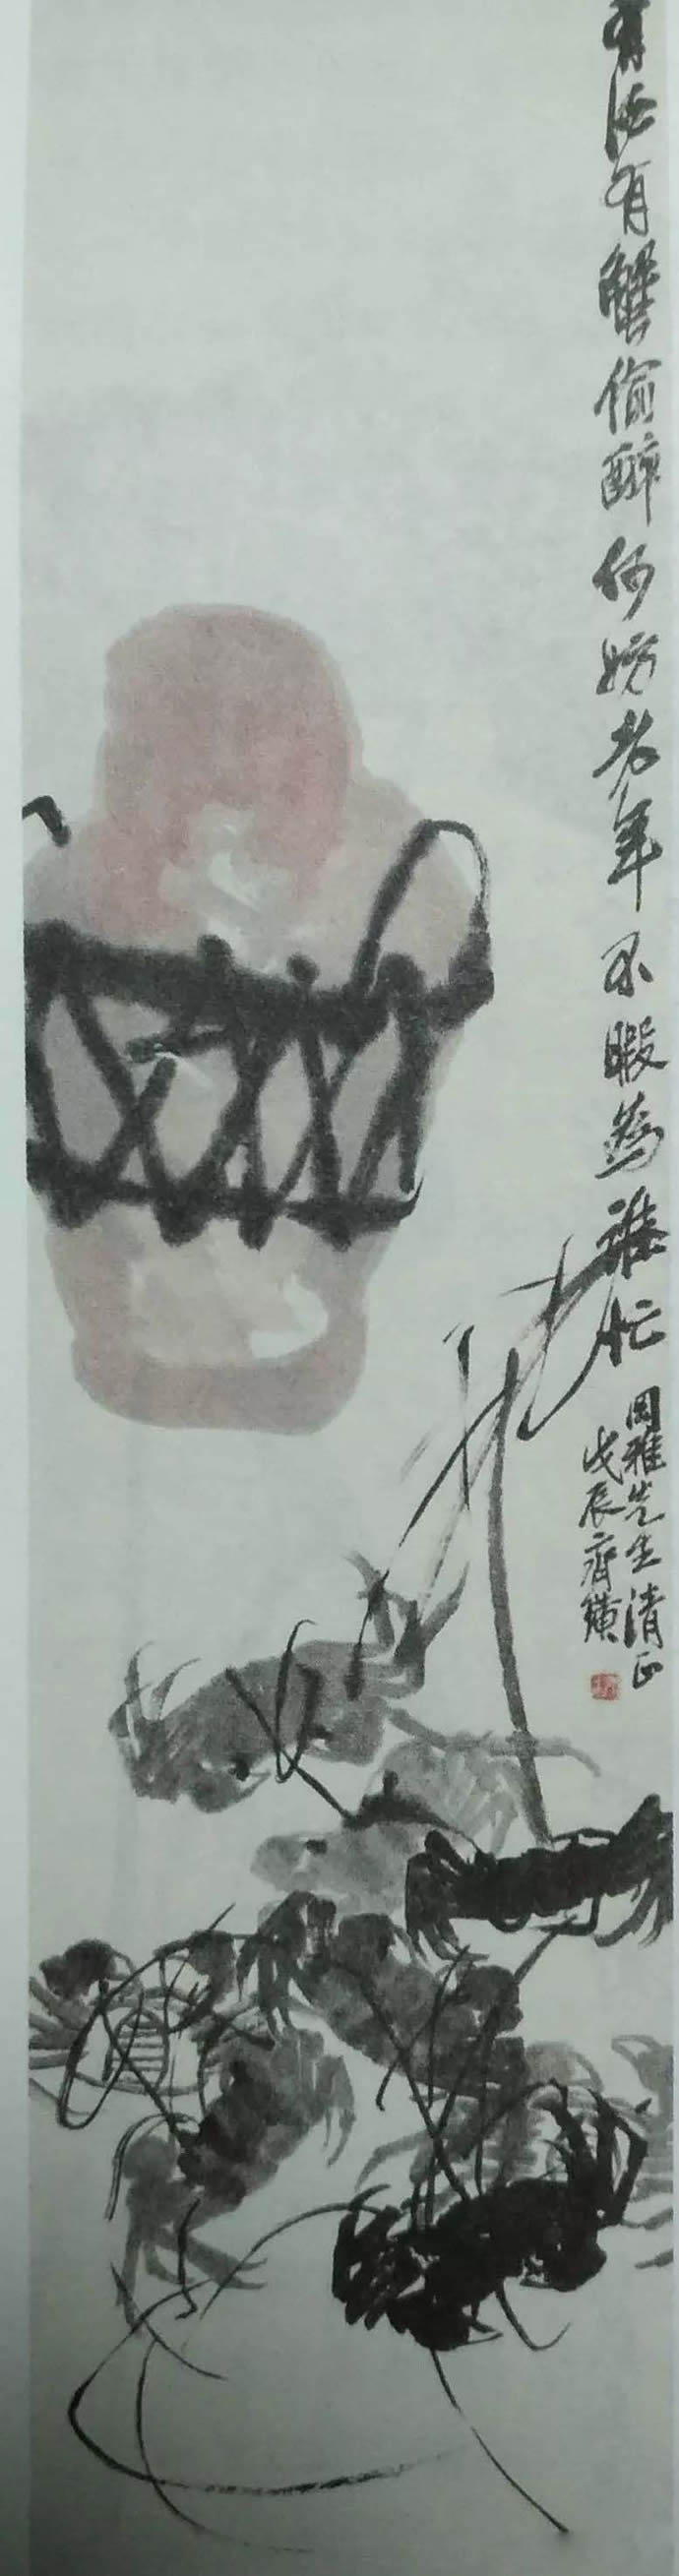 有酒有蟹偷醉何妨老年不暇為誰忙
雅先生清正
戊辰齊璜